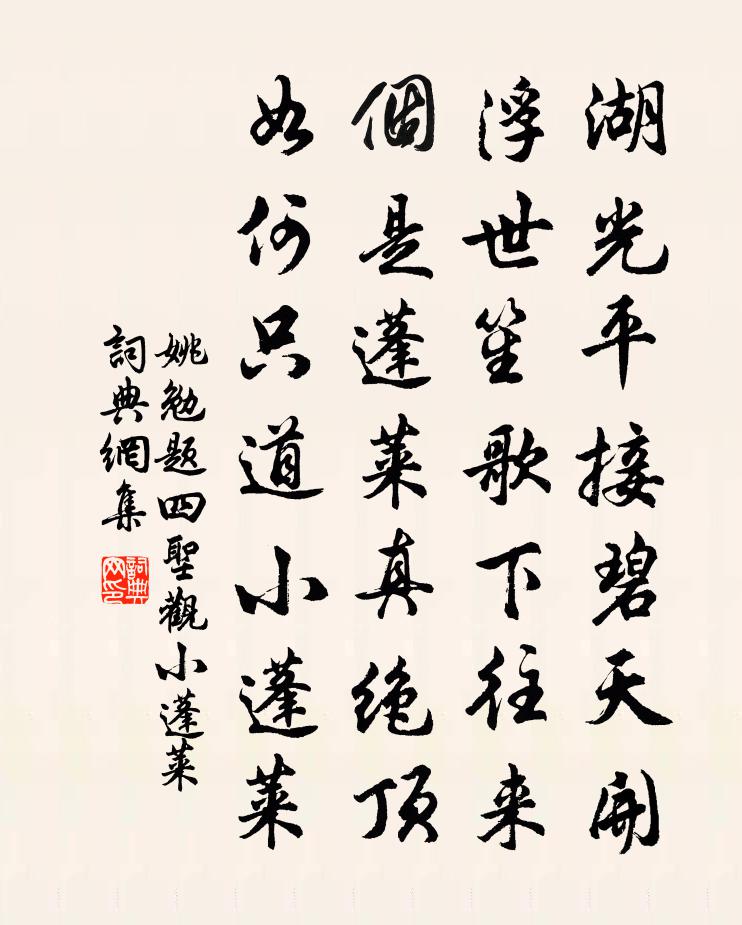 湖光平接碧天開
浮世笙歌下往来
個是蓬萊真绝頂
如何只道小蓬萊
姚勉题四聖觀小蓬萊
詞典網集
詞典网印